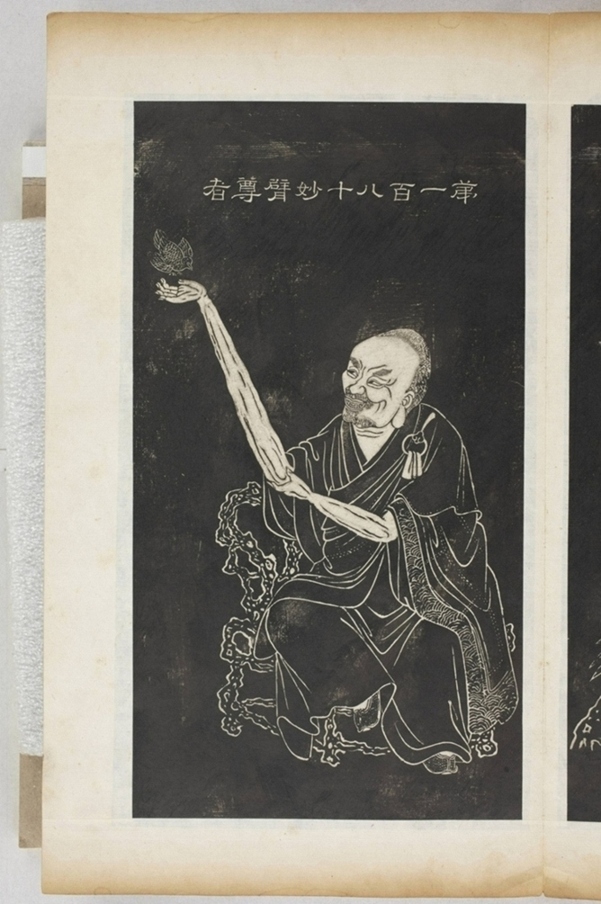 第一百八十妙臂尊者